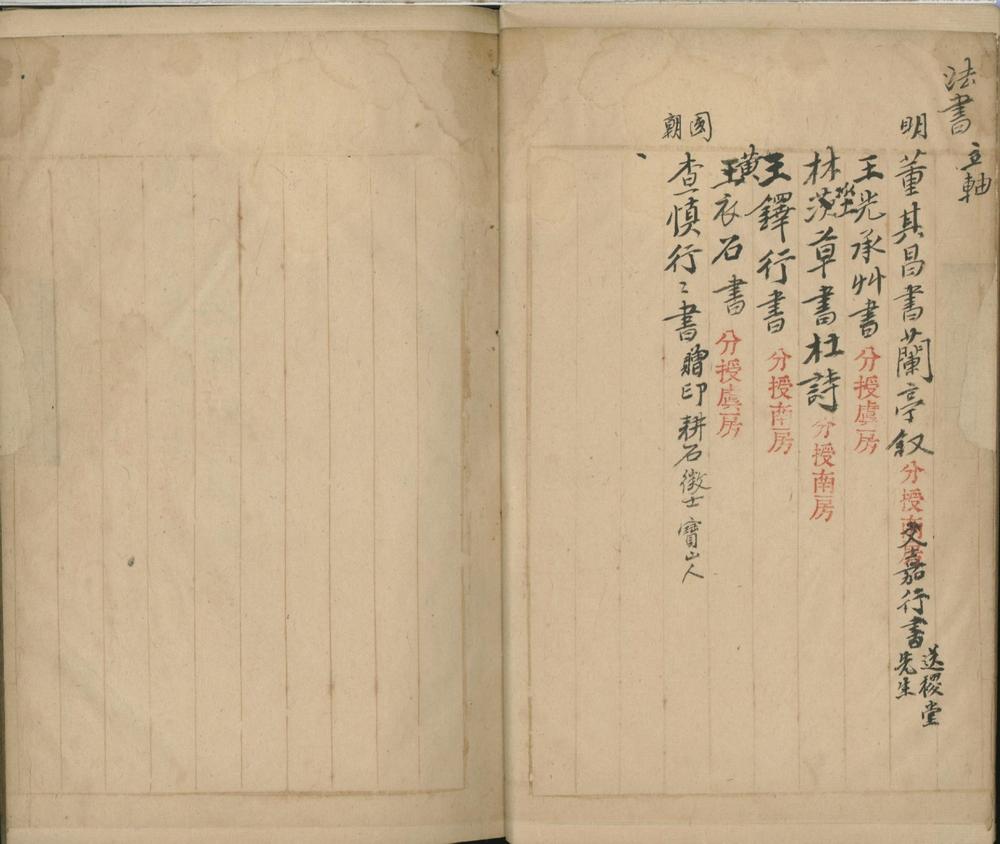 法書 立軸
明 董其昌書蘭亭叙 分授南房 文嘉行書 送稷堂先生
王光承艸書 分授虞房
林茨草書杜詩 分授南房
王鐸行書 分授南房
黄衣石書 分授虞房
國朝 查慎行〻書 贈印耕石徵士 寶山人